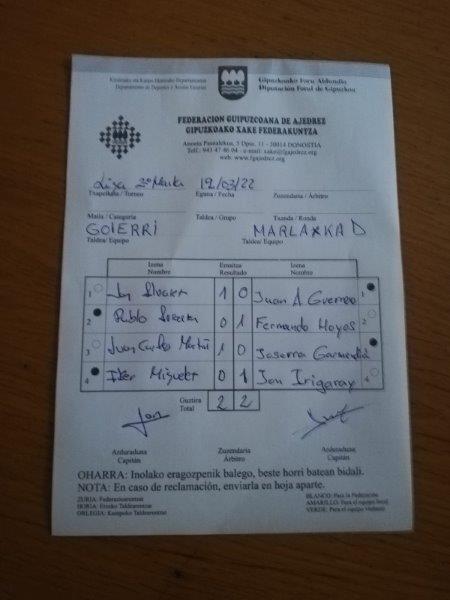 Gipuzkoako Foru Aldundia
Departamento de Deportes y Acción Exterior Diputación Foral de Gipuzkoa
FEDERACION GUIPUZCOANA DE AJEDREZ
GIPUZKOAKO XAKE FEDERAKUNTZA
Anoeta Pasealekua, 5 Dpto. 11 - 20014 DONOSTIA
Telf.: 943 47 46 04 - e-mail: xake@fgajedrez.org
web: www.fgajedrez.org
Liga 19/03/22
Txapelketa / Torneo Eguna / Fecha Zuzendaria / Árbitro
Maila / Categoría Taldea / Grupo Txanda / Ronda
GOIERRI MARLAXKA D
Taldea / Equipo Taldea / Equipo
Izena Emaitza Izena
Nombre Resultado Nombre
1 1 0 Juan A Guerrero 1
2 Pablo 0 1 Fernando Hoyos 2
3 Juan Carlos 1 0 Joserra Garmendia 3
4 Iker Miguelez 0 1 Jon Irigaray 4
Guztira 2 2
Total
Arduraduna Zuzendaria Arduraduna
Capitán Árbitro Capitán
OHARRA: Inolako eragozpenik balego, beste horri batean bidali.
NOTA: En caso de reclamación, enviarla en hoja aparte.
ZURIA: Federazioarentzat BLANCO: Para la Federación
HORIA: Etxeko Taldearentzat AMARILLO: Para el equipo local
ORLEGIA: Kanpoko Taldearentzat VERDE: Para el equipo visitante